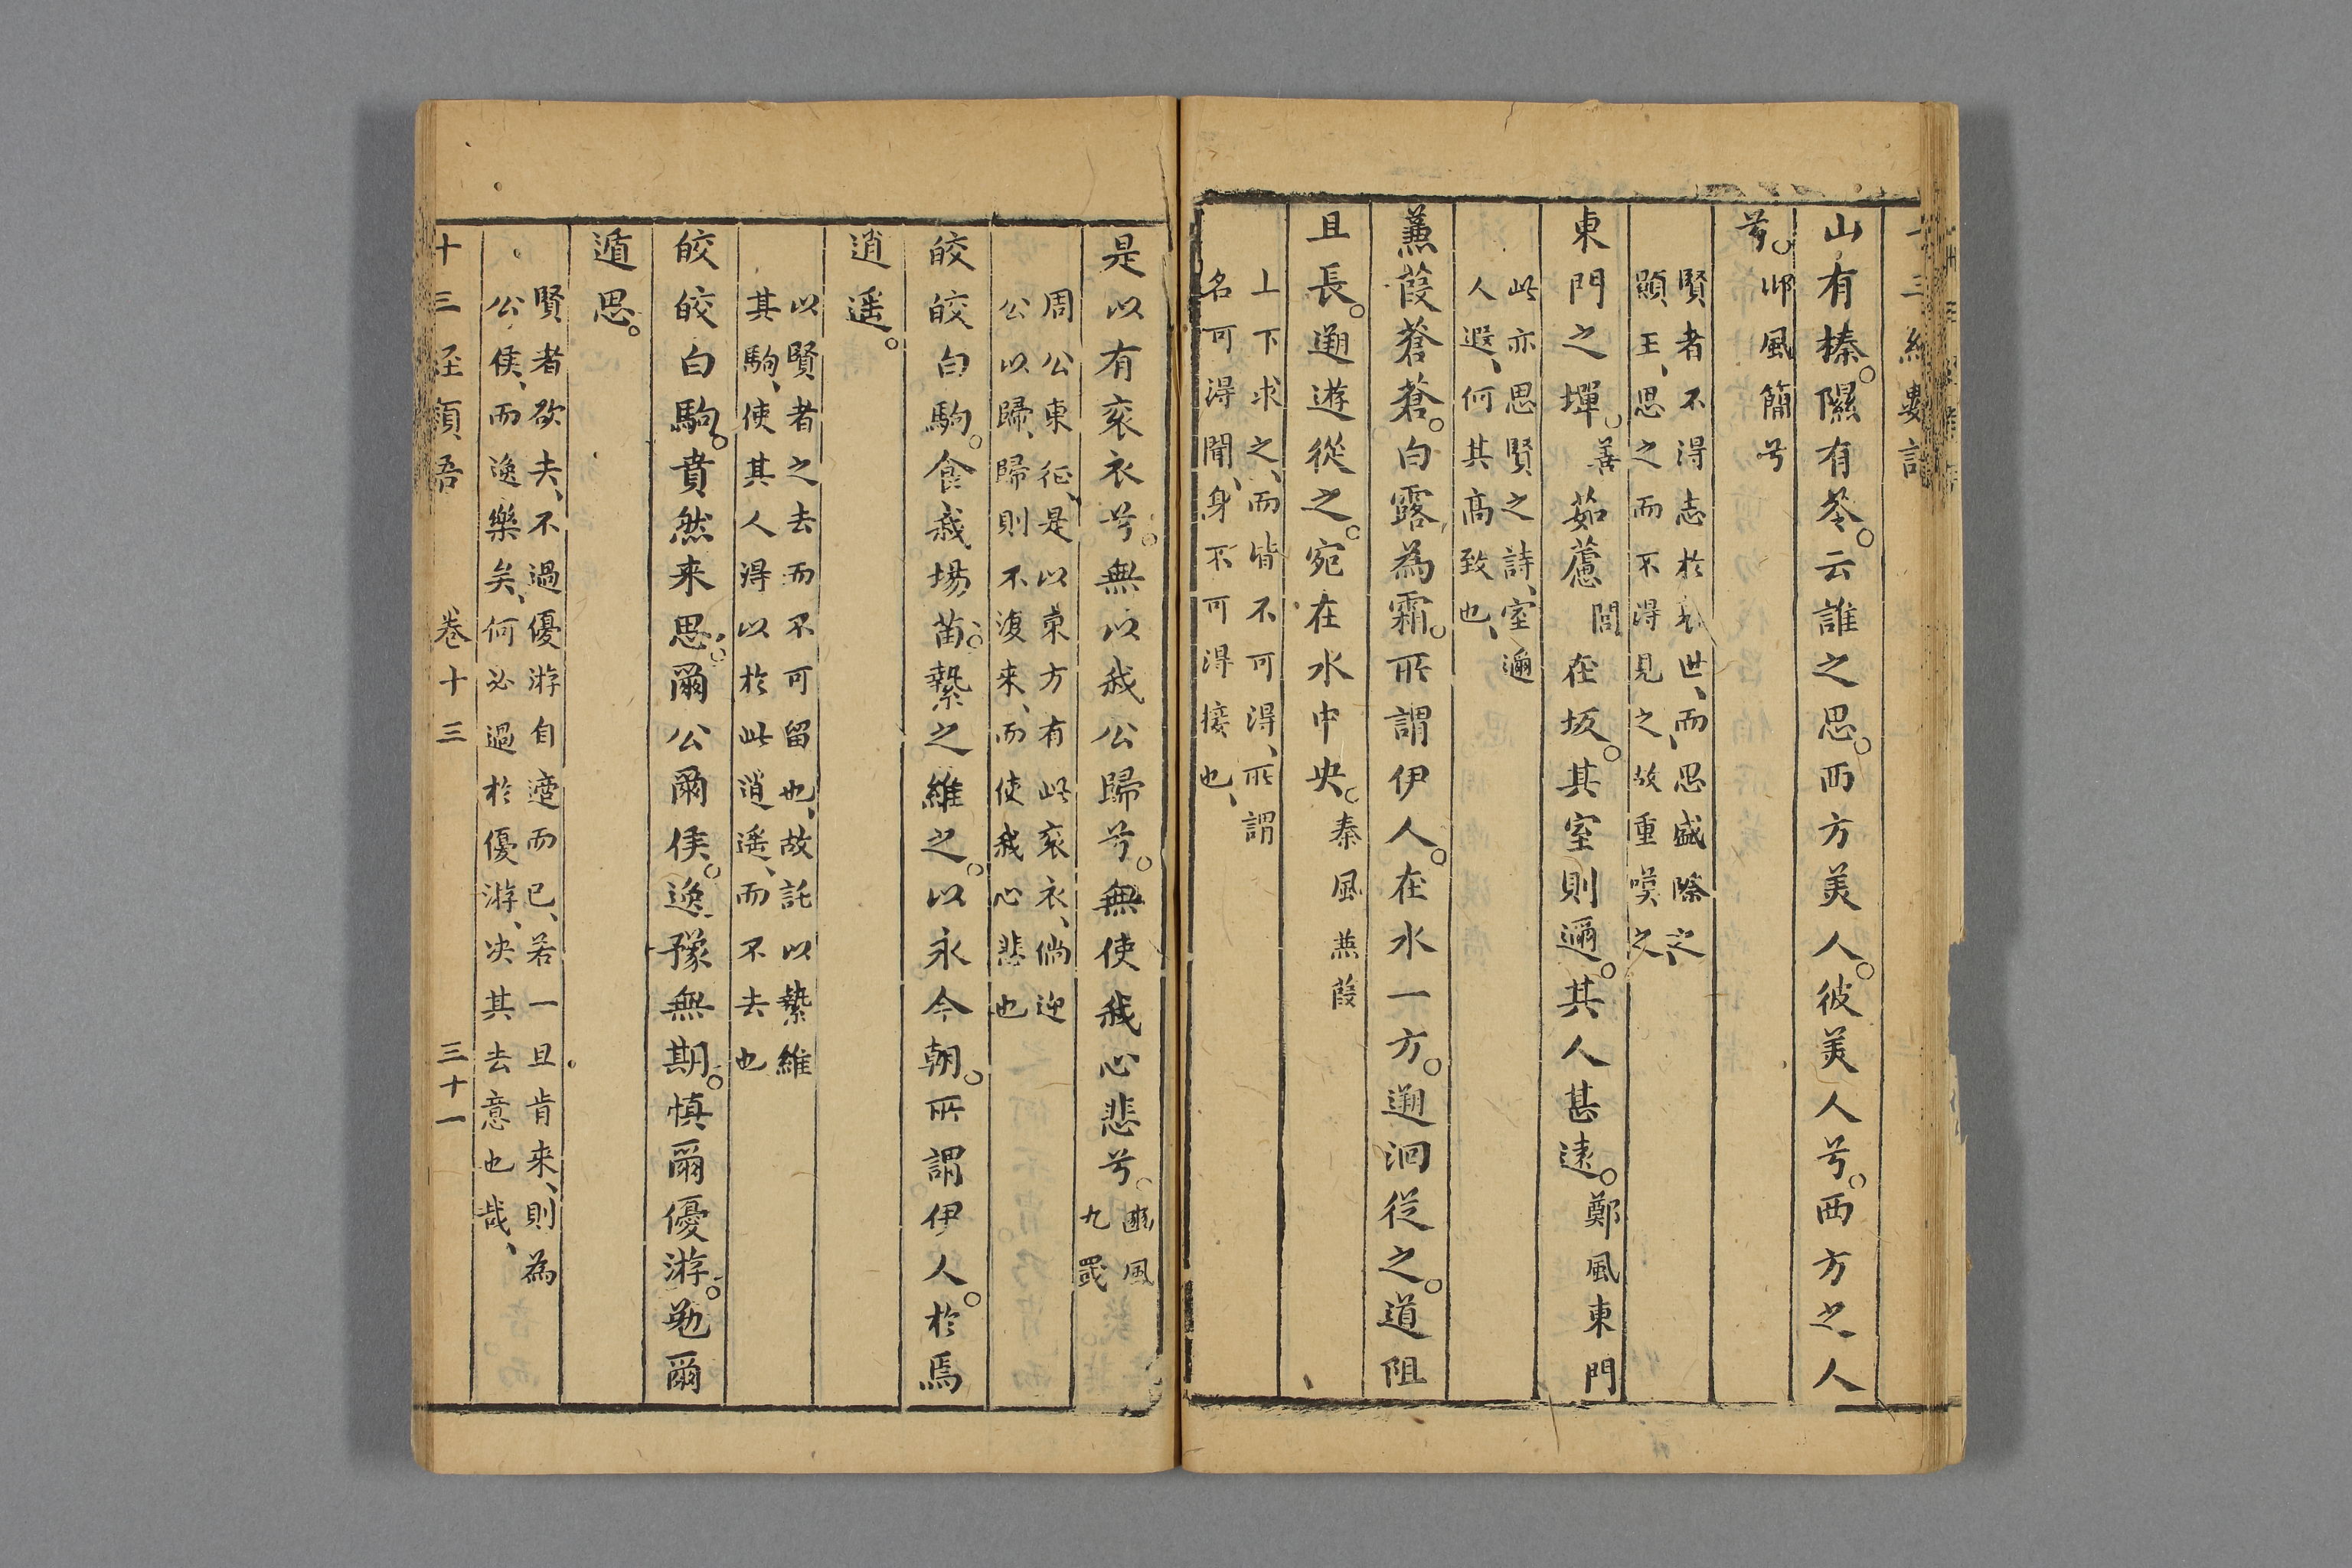 山有榛。隰有苓。云誰之思。西方美人。彼美人兮。西方之人
兮。邶風簡兮
賢者不得志於衰世、而思盛際之
顯王、思之而不得見之、故重嘆之、
東門之墠。善茹藘閭在坂。其室則邇。其人甚遠。鄭風東門
此亦思賢之詩、室邇
人遐、何其高致也、
蒹葭蒼蒼。白露為霜。所謂伊人。在水一方。遡洄從之。道阻
且長。遡遊從之。宛在水中央。秦風蒹葭
上下求之、而皆不可得、所謂
名可得聞、身不可得接也、
是以有衮衣兮。無以我公歸兮。無使我心悲兮。豳風
九罭
周公東征、是以東方有此衮衣、倘迎
公以歸、歸則不復来、而使我心悲也
皎皎白駒。食我場苗。縶之維之。以永今朝。所謂伊人。於焉
逍遥。
以賢者之去而不可留也、故託以縶維
其駒、使其人得以於此逍遥、而不去也
皎皎白駒。賁然来思。爾公爾侯。逸豫無期。慎爾優游。勉爾
遁思。
賢者欲去、不過優游自適而已、若一旦肯来、則為
公侯、而逸樂矣、何必過於優游、决其去意也哉、
十三経頪吾 卷十三 三十一